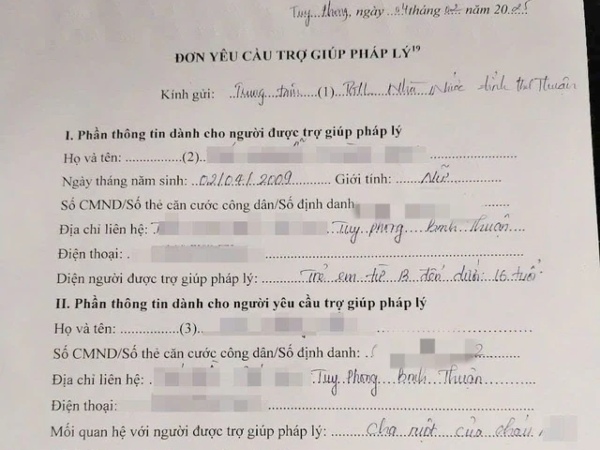 Tuy Phong, ngày 04 tháng 02 năm 2025
ĐƠN YÊU CẦU TRỢ GIÚP PHÁP LÝ¹⁹
Kính gửi: Trung tâm (1) Nhà Nước tỉnh Thuận
I. Phần thông tin dành cho người được trợ giúp pháp lý
Họ và tên: (2)
Ngày tháng năm sinh: 02/04/2009 Giới tính: Nữ
Số CMND/Số thẻ căn cước công dân/Số định danh
Địa chỉ liên hệ: Tuy phong Bình Thuận
Điện thoại:
Diện người được trợ giúp pháp lý: Trẻ em từ 13 đến dưới 16 tuổi
II. Phần thông tin dành cho người yêu cầu trợ giúp pháp lý
Họ và tên: (3)
Số CMND/Số thẻ căn cước công dân/Số định danh: 2
Địa chỉ liên hệ: Tuy Phong Bình Thuận
Điện thoại:
Mối quan hệ với người được trợ giúp pháp lý: Cha ruột của cháu